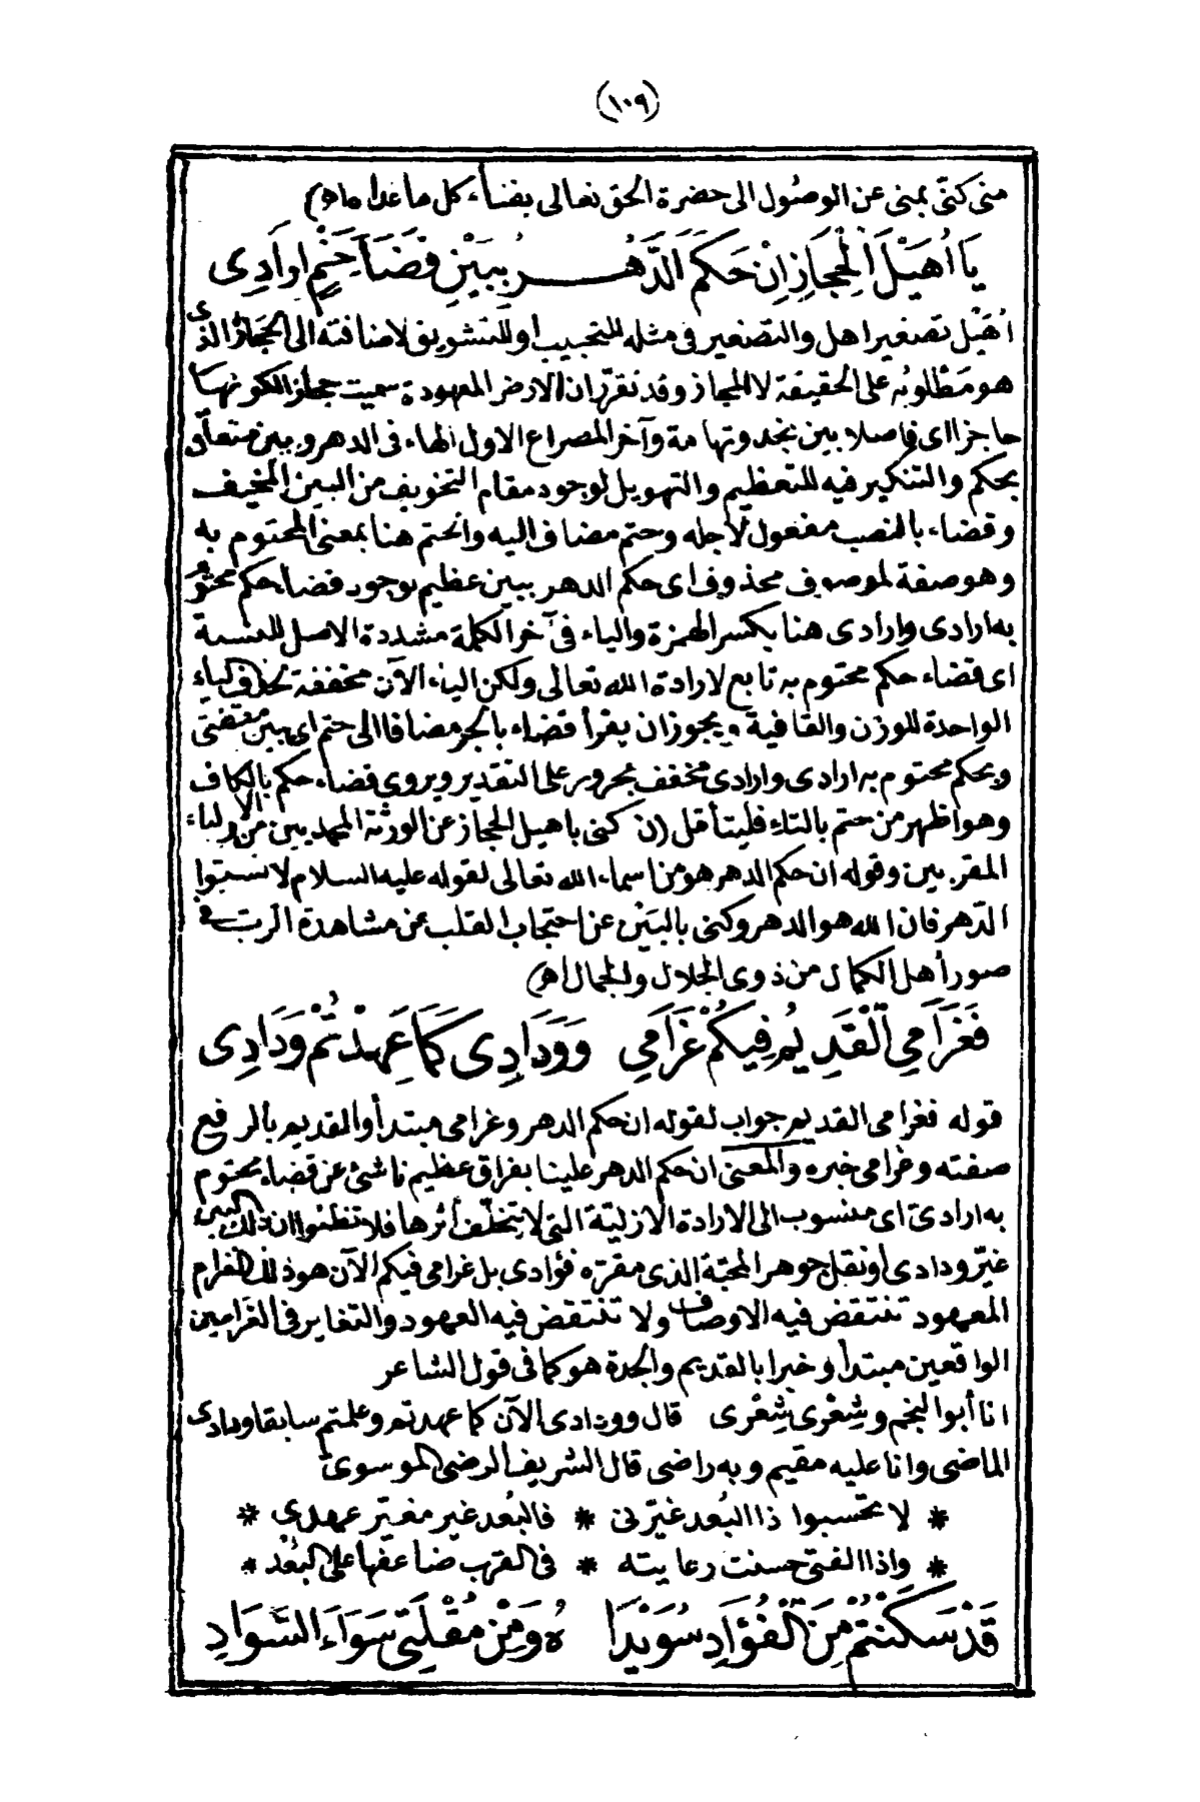 (١٠٩)
منى كنّى بمنى عن الوصُول الى حضرة الحق تعالى بفناء كل ما عدا ها اه)
يَا أُهَيْلَ الْحِجَازِ إِنْ حَكَمَ الدَّهْـــرُ بِبَيْنٍ قَضَاءَ حَتْمٍ اِرَادِى
أُهَيْل تصغير اهل والتصغير فى مثله للتحبيب أو للتشويق لاضافته الى الحجاز الذى
هو مَطْلوبُه على الحقيقة لا المجاز وقد تقرّر ان الارض المعهودة سميت حجازا لكونها
حاجزا اى فاصلا بين نجد وتهامة وآخر المصراع الاول الهاء فى الدهر وببين متعلّق
بحكم والتنكير فيه للتعظيم والتهويل لوجود مقام التخويف من البين المخيف
وقضاء بالنصب مفعول لاجله وحتم مضاف اليه والحتم هنا بمعنى المحتوم به
وهو صفة لموصوف محذوف اى حكم الدهر ببين عظيم لوجود قضاء حكم محتوم
به ارادى وارادى هنا بكسر الهمزة والياء فى آخر الكلمة مشددة الاصل للنسبة
اى قضاء حكم محتوم به تابع لارادة الله تعالى ولكن الياء الآن مخففة بحذف الياء
الواحدة للوزن والقافية ويجوز ان يقرأ قضاء بالجر مضافا الى حتم اى ببين مقتضى
وبحكم محتوم به ارادى وارادى مخفف مجرور على التقدير ويروى قضاء حكم بالكاف
وهو اظهر من حتم بالتاء فليتأمل (ن كنى باهيل الحجاز عن الورثة المحمديين من الاولياء
المقربين وقوله ان حكم الدهر هو من اسماء الله تعالى لقوله عليه السلام لا تسبّوا
الدّهر فان الله هو الدهر وكنى بالبَيْن عن احتجاب القلب عن مشاهدة الربّ فى
صور أهل الكمال من ذوى الجلال والجمال اه)
فَغَرَامِى الْقَدِيمُ فِيكُمْ غَرَامِى وَوِدَادِى كَمَا عَهِدْتُمْ وِدَادِى
قوله فغرامى القديم جواب لقوله ان حكم الدهر وغرامى مبتدأ والقديم بالرفع
صفته وغرامى خبره والمعنى ان حكم الدهر علينا بفراق عظيم ناشئ عن قضاء محتوم
به ارادىّ اى منسوب الى الارادة الازليّة التى لا يتخلّف أثرها فلا تظنّوا ان ذلك البين
غيّر ودادى أو نقل جوهر المحبّة الذى مقرّه فؤادى بل غرامى فيكم الآن هو ذلك الغرام
المعهود تنتقض فيه الاوصاف ولا تنتقض فيه العهود والتغاير فى الغرامين
الواقعين مبتدأ وخبرا بالقديم والجدة هو كما فى قول الشاعر
انا أبو النجم وشِعْرى شِعْرى قال وودادى الآن كما عهدتم وعلمتم سابقا ودادى
الماضى وانا عليه مقيم وبه راضى قال الشريف الرضى الموسوىّ
* لا تحسبوا ذا البُعد غيّرنى * فالبُعد غير مغيّر عهدى *
* واذا الفتى حسنت رعايته * فى القرب ضاعفها على البُعْد *
قَدْ سَكَنْتُمْ مِنَ الْفُؤَادِ سُوَيْدَا هُ وَمِنْ مُقْلَتِى سَوَاءَ السَّوَادِ